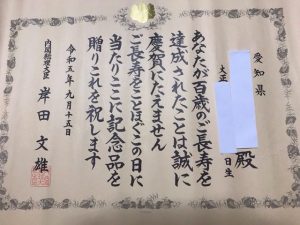 愛知県
殿
大正
日生
あなたが百歳のご長寿を
達成されたことは誠に
慶賀にたえません
ご長寿をことほぐこの日に
当たりここに記念品を
贈りこれを祝します
令和五年九月十五日
内閣総理大臣 岸田文雄